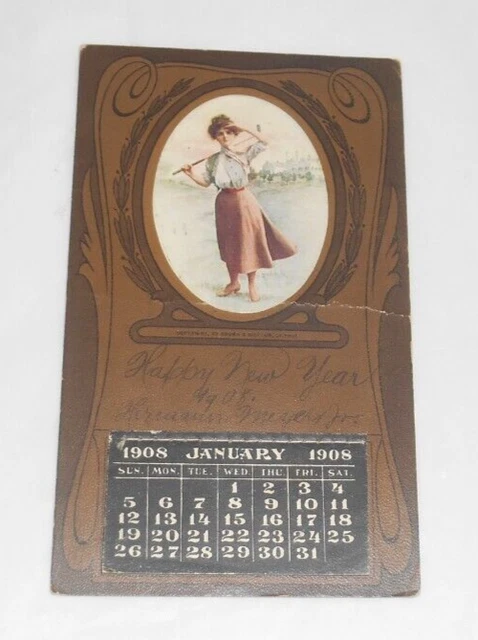 Happy New Year
1908.
Hermann Meyer Jr.
1908 JANUARY 1908
SUN. MON. TUE. WED. THU. FRI. SAT.
1 2 3 4
5 6 7 8 9 10 11
12 13 14 15 16 17 18
19 20 21 22 23 24 25
26 27 28 29 30 31